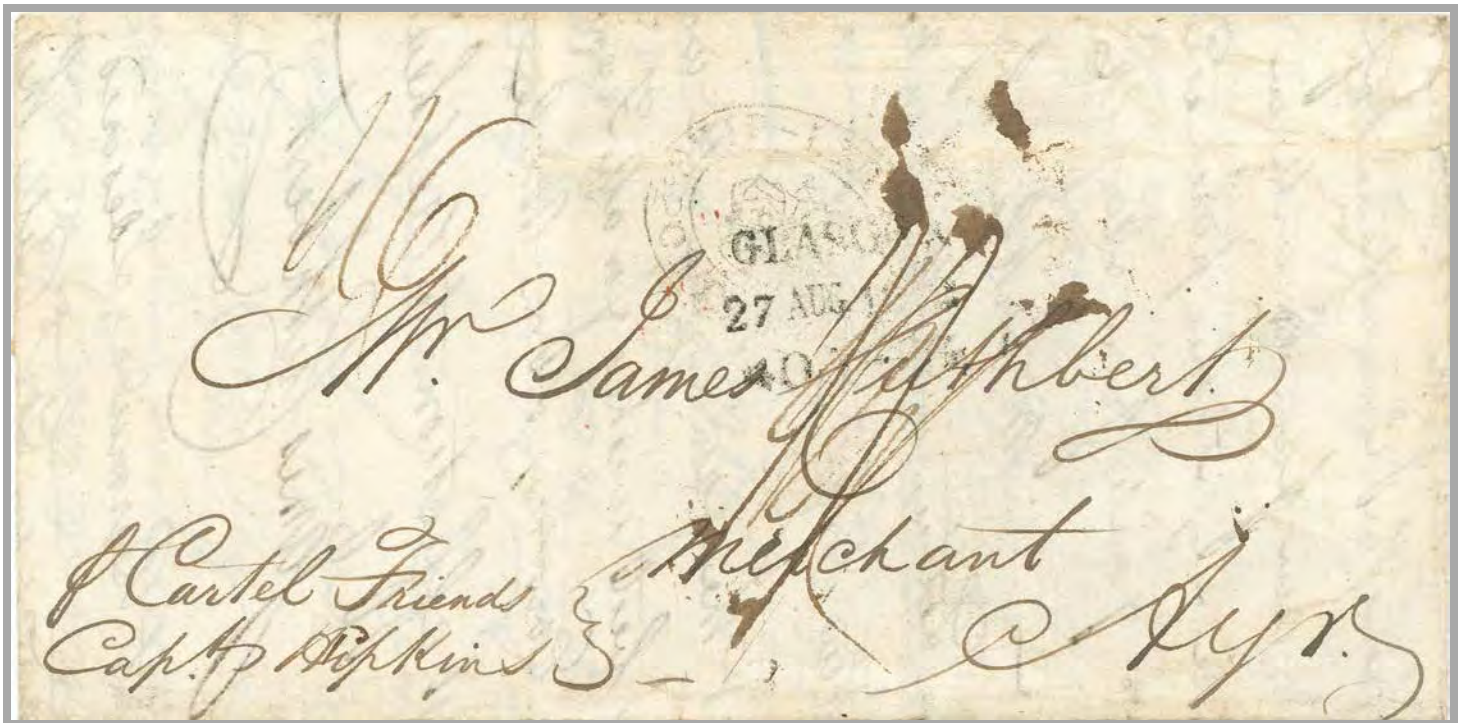 116
GLASGOW
27 AUG
Mr. James Cuthbert.
Merchant
Ayr.
℘ Cartel Friends
Capt. Hipkins